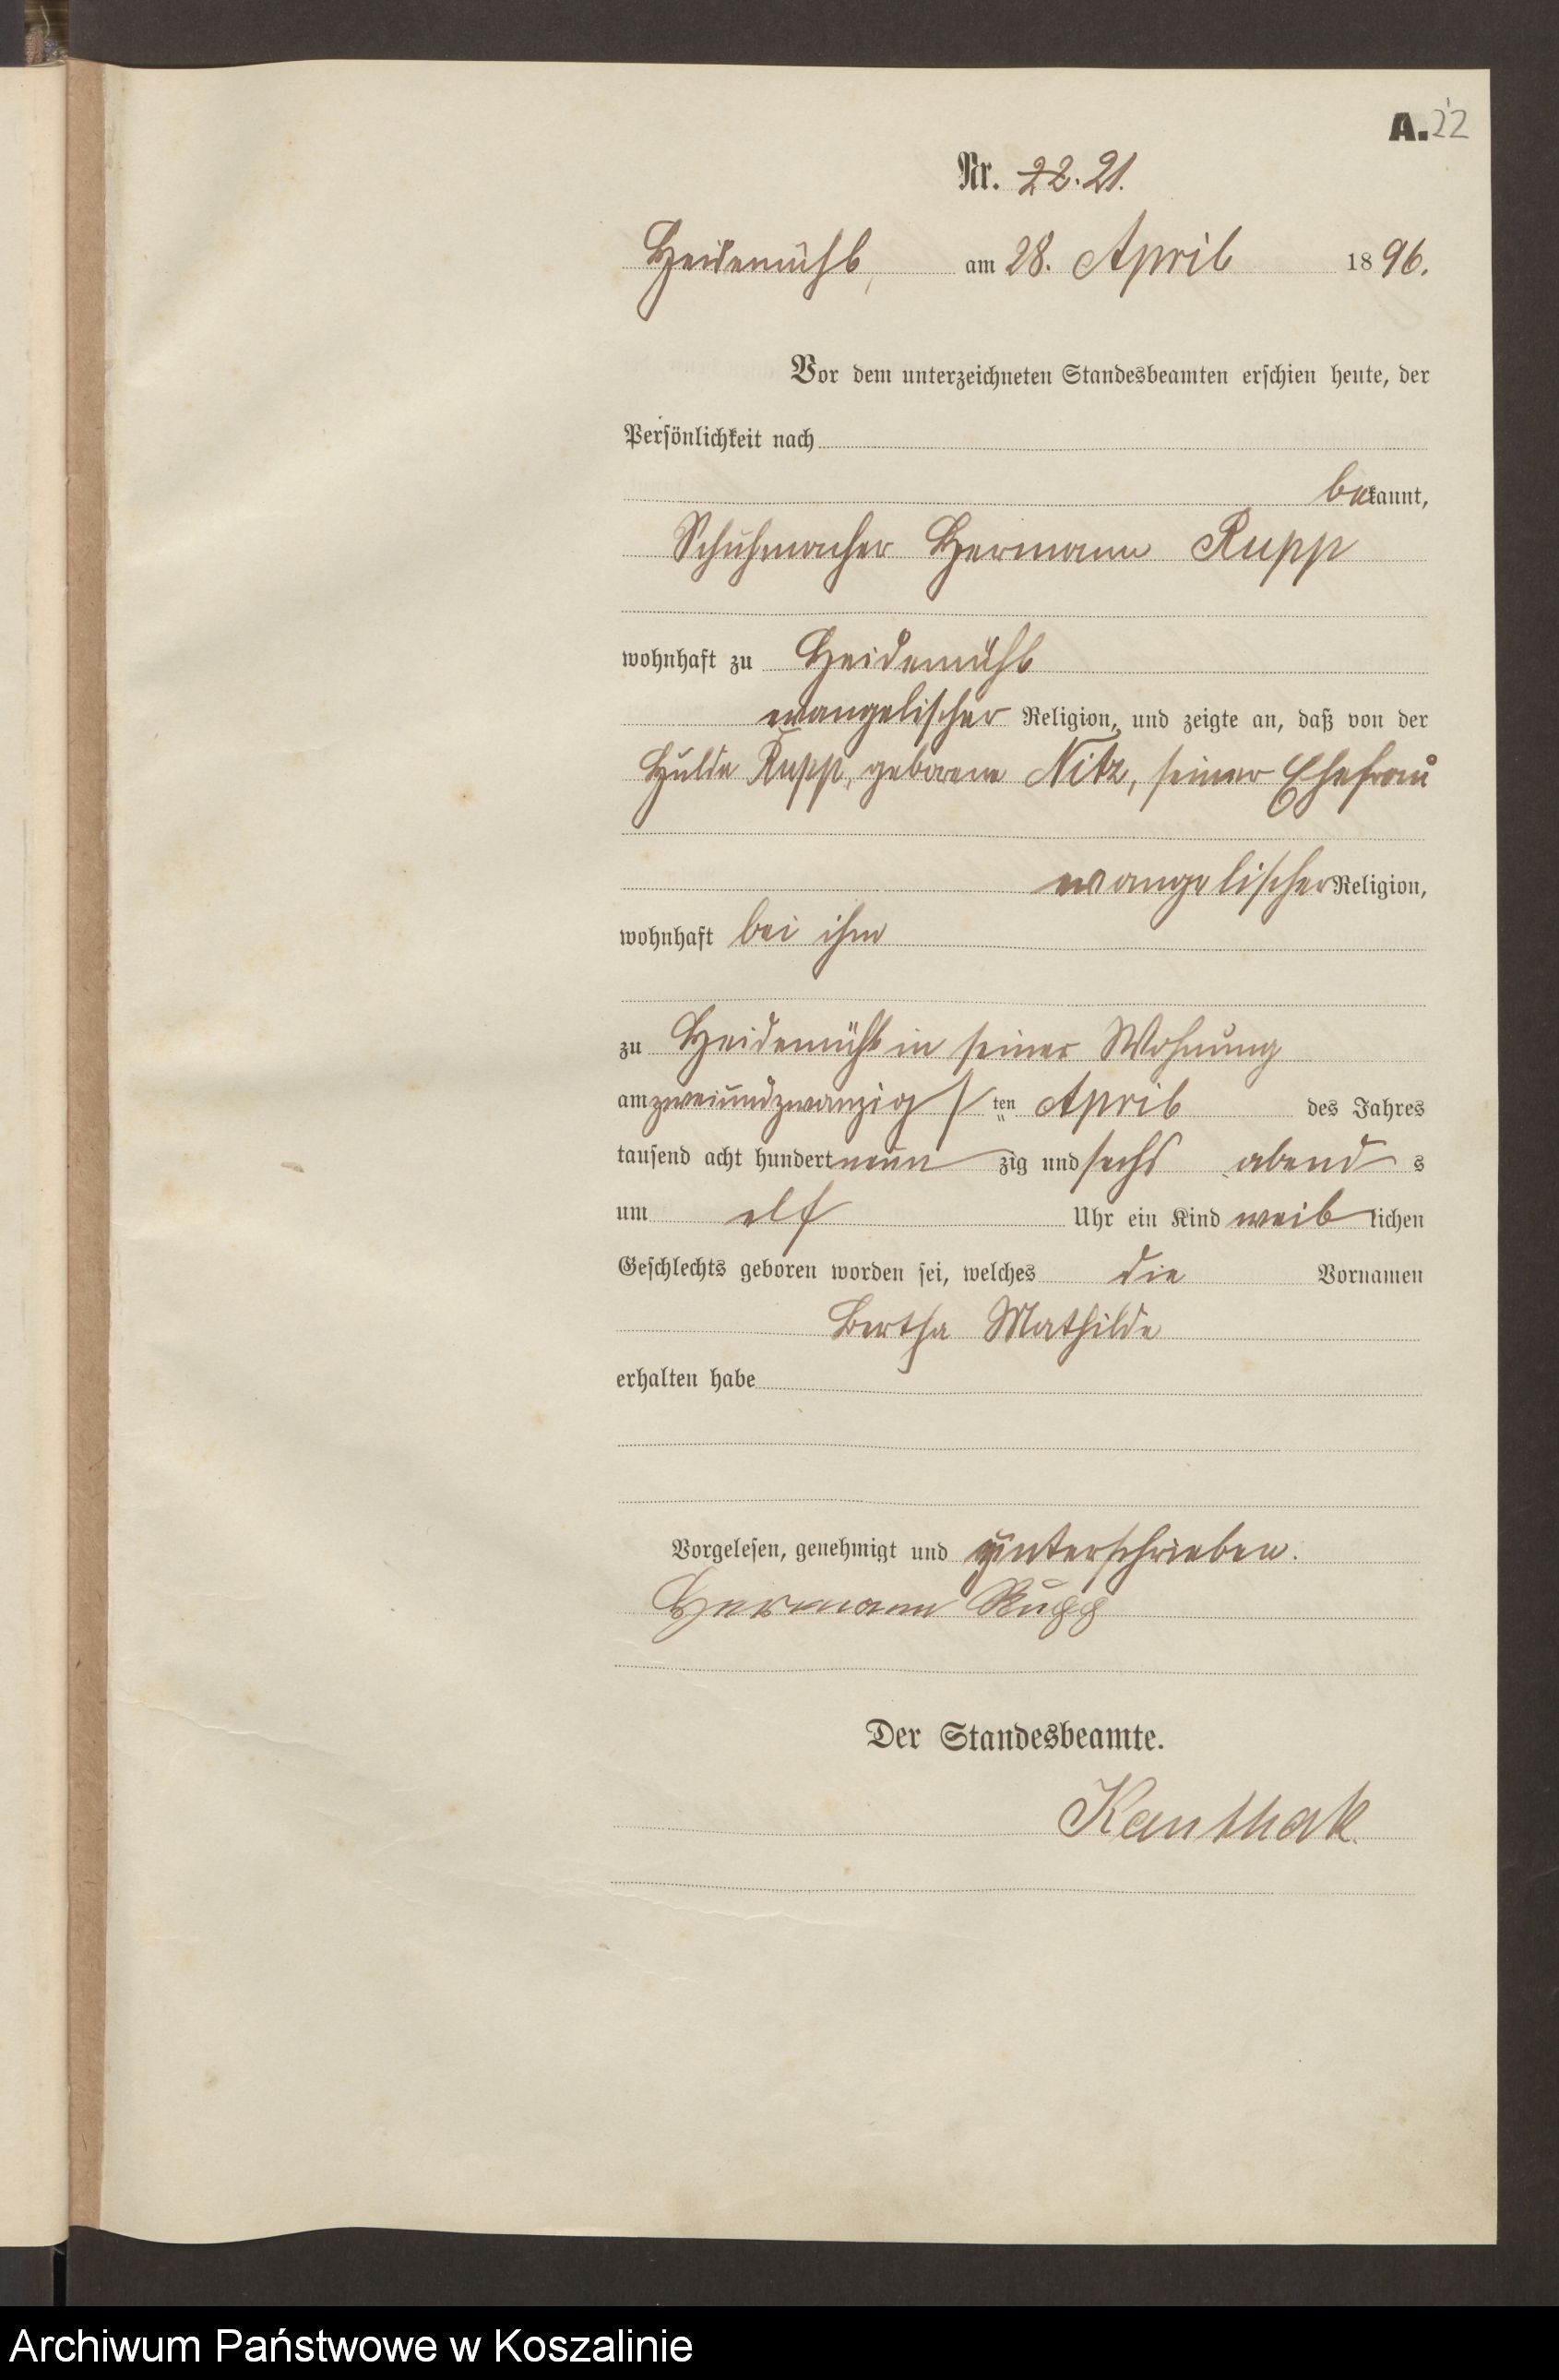 A. 22
Nr. 22. 21.
Heidemühl, am 28. April 1896.
Vor dem unterzeichneten Standesbeamten erschien heute, der
Persönlichkeit nach
bekannt,
Schuhmacher Hermann Rupp
wohnhaft zu Heidemühl
evangelischer Religion, und zeigte an, daß von der
Hulda Rupp, geborene Nitz, seiner Ehefrau
evangelischer Religion,
wohnhaft bei ihm
zu Heidemühl in seiner Wohnung
am zweiundzwanzigsten April des Jahres
tausend acht hundert neunzig und sechs abends
um elf Uhr ein Kind weiblichen
Geschlechts geboren worden sei, welches die Vornamen
Bertha Mathilde
erhalten habe
Vorgelesen, genehmigt und unterschrieben.
Hermann Rupp
Der Standesbeamte.
Kanthak
Archiwum Państwowe w Koszalinie